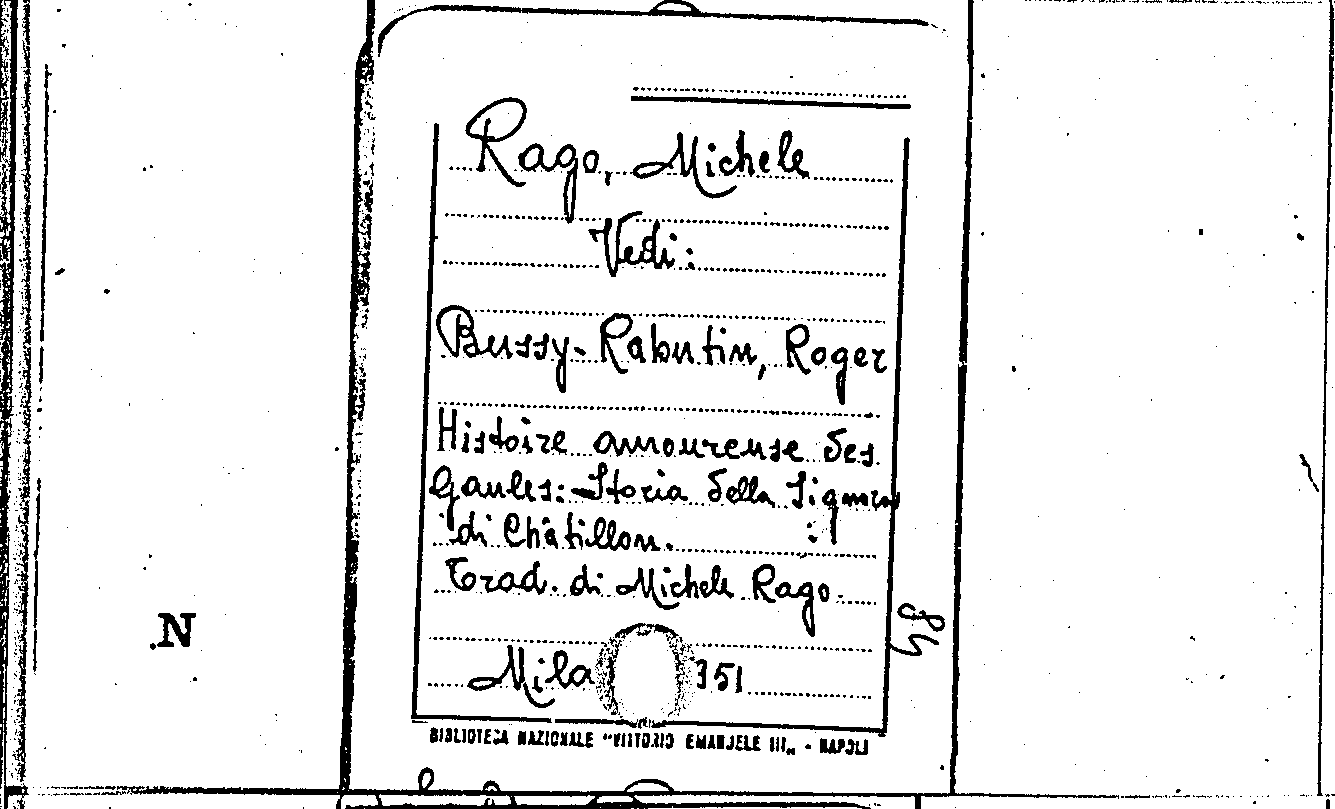 Rago, Michele
Vedi:
Bussy-Rabutin, Roger
Histoire amoureuse des
Gaules: Storia della Signora
di Châtillon.
Trad. di Michele Rago.
Mila 951
84
.N
BIBLIOTECA NAZIONALE "VITTORIO EMANUELE III" - NAPOLI